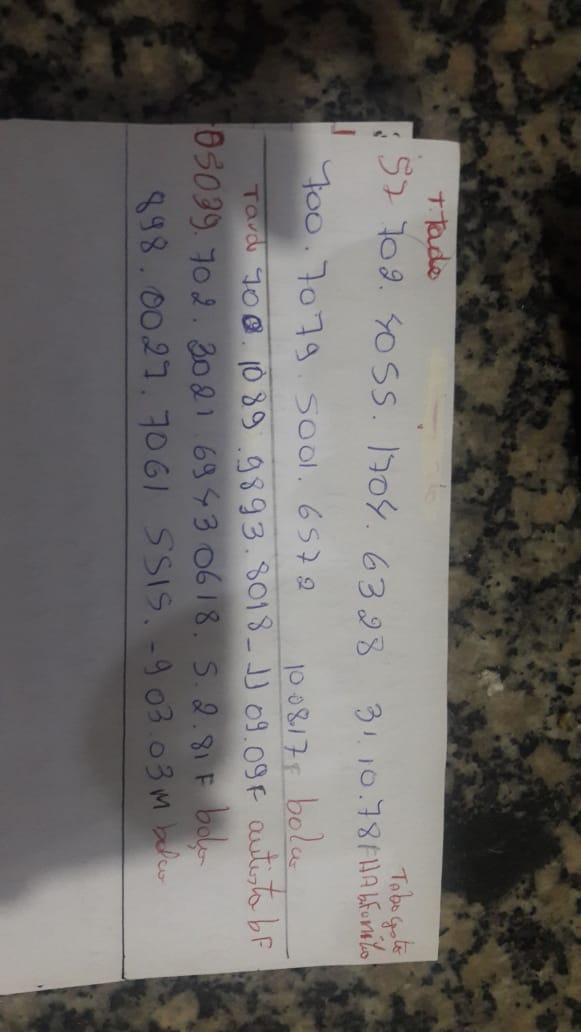 T. Tade
57 702. 4055. 1704. 6328 31.10.78 F HA bFamilio
700. 7079. 5001. 6572 10.08.17 F bolsa
Tard 700. 1089. 9893. 8018 - 11 09.09 F autisto bF
05039. 702. 3021 6943 0618. 5. 2. 81 F bolço
898. 0027. 7061 5515. - 9 03.03 M bolso